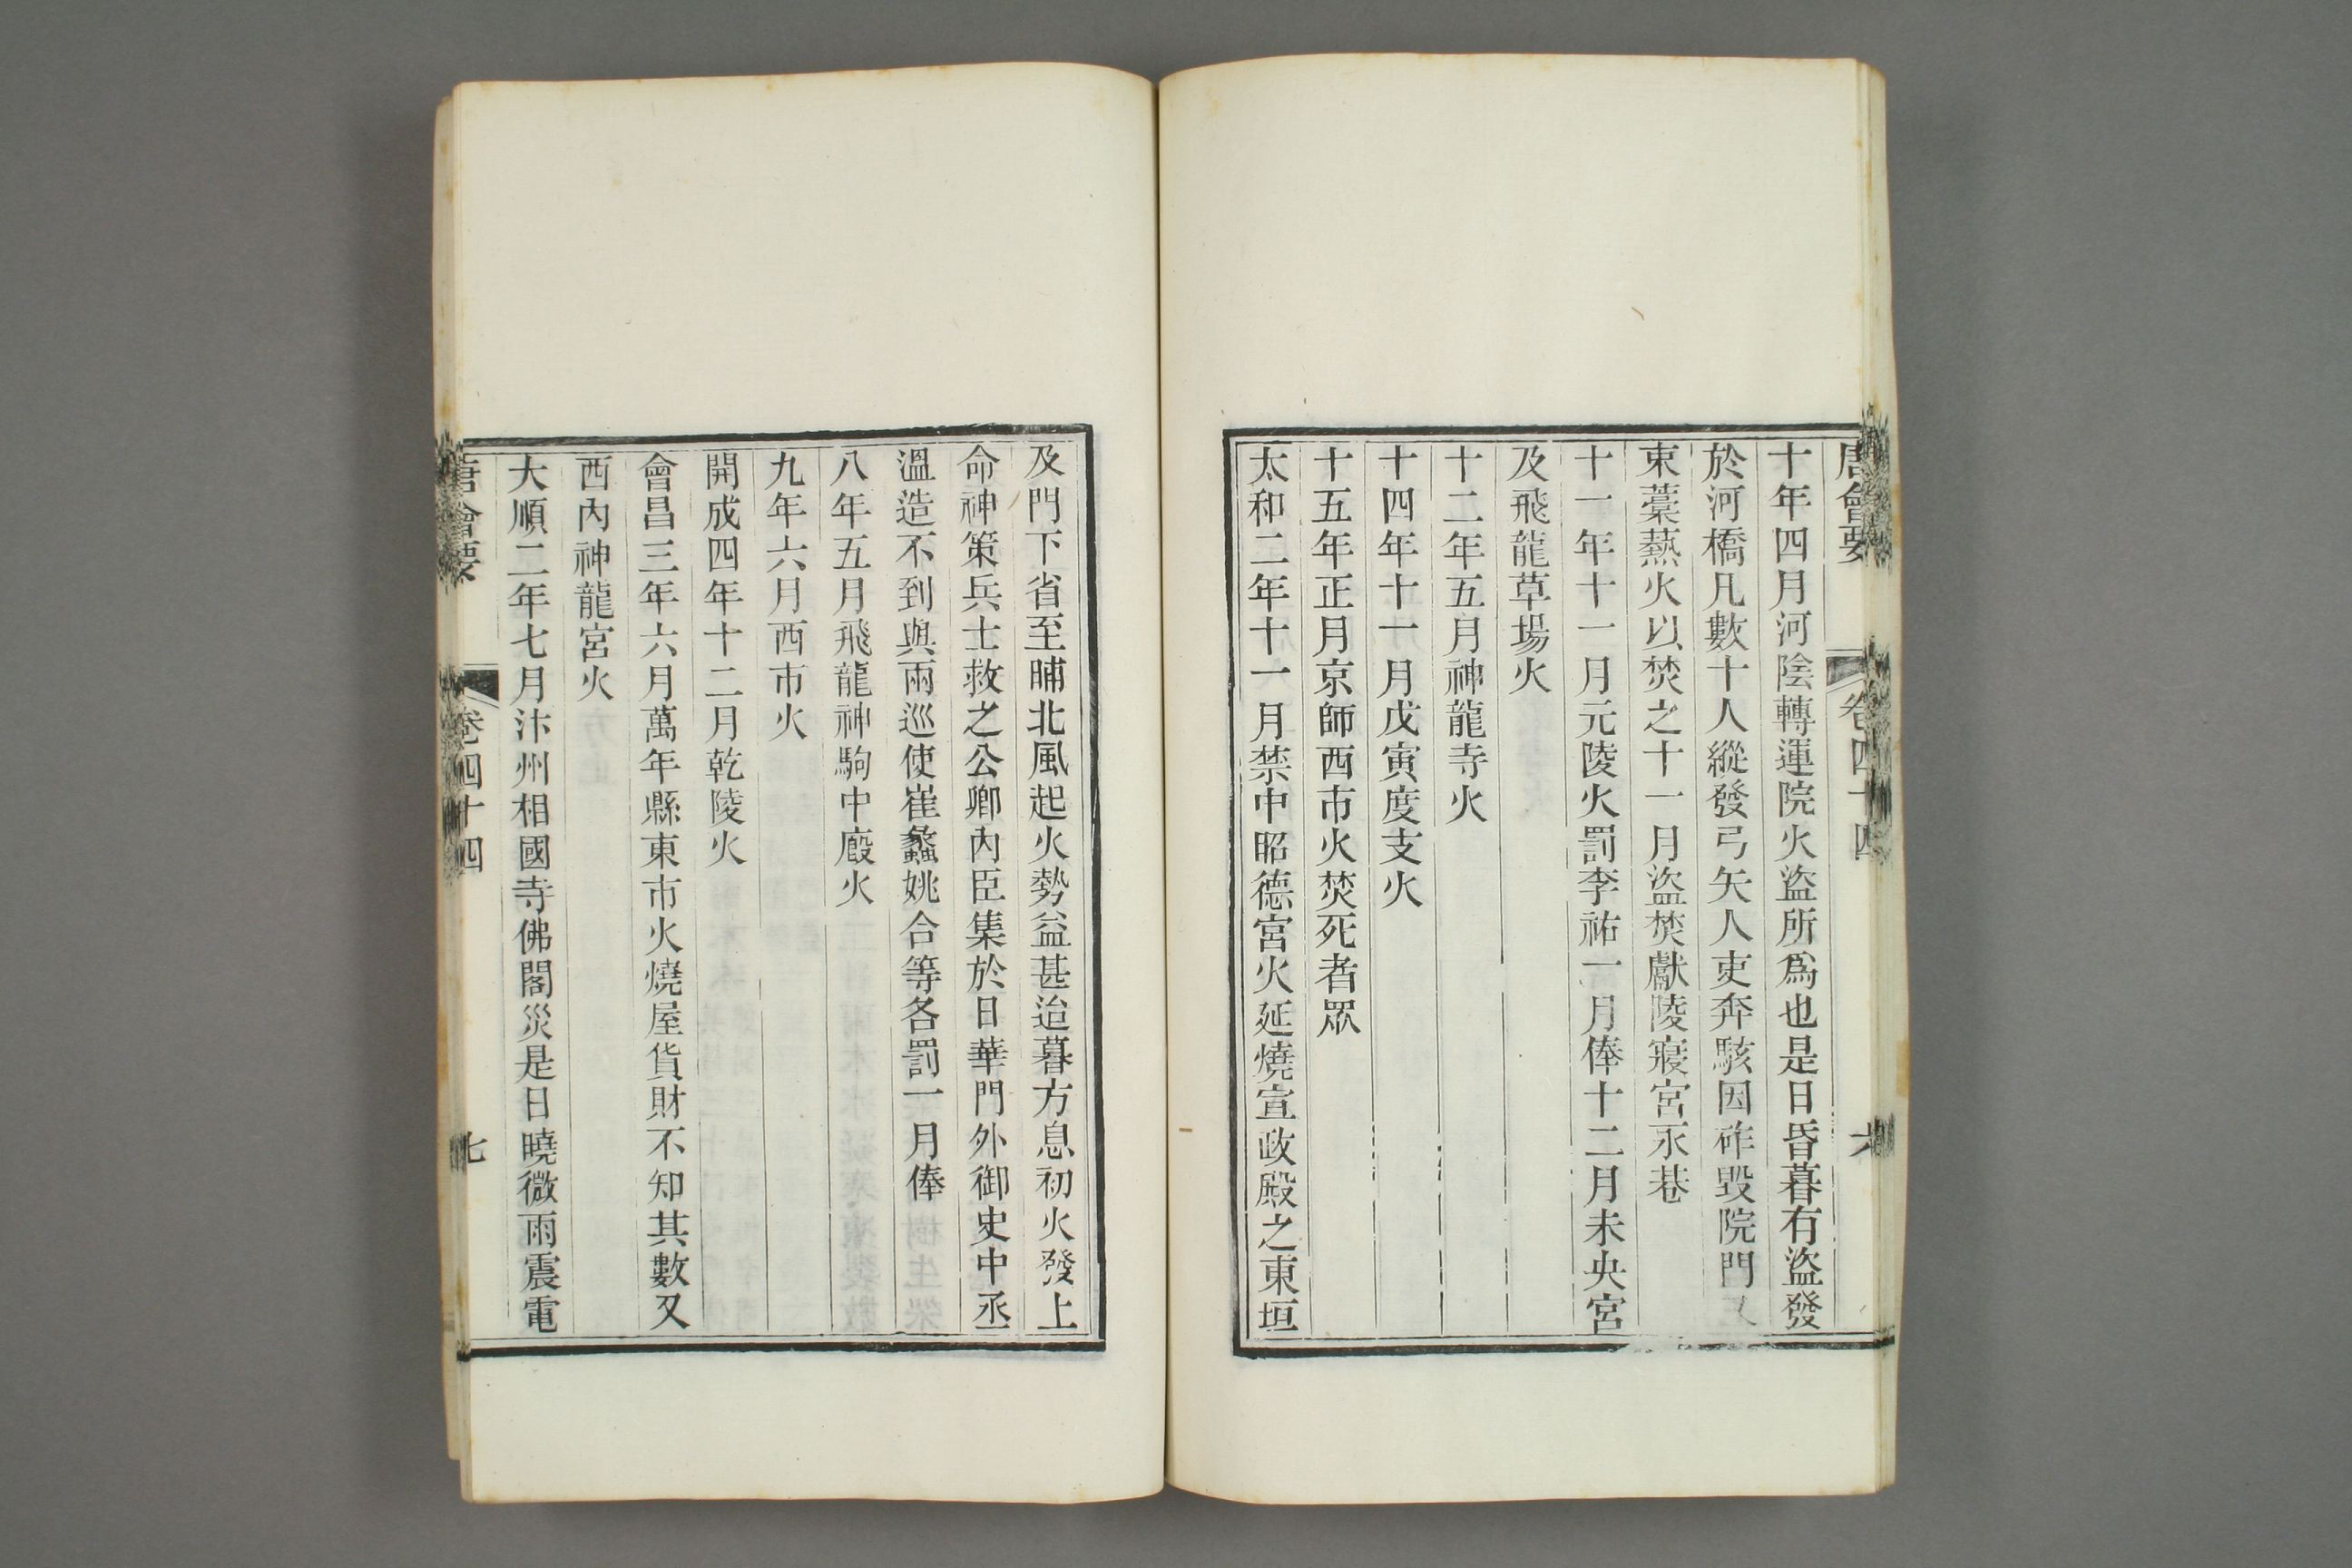 唐會要 卷四十四 六
十年四月河陰轉運院火盜所爲也是日昏暮有盜發
於河橋凡數十人縱發弓矢人吏奔駭因砟毀院門又
束藁爇火以焚之十一月盜焚獻陵寢宮永巷
十一年十一月元陵火罰李祐一月俸十二月未央宮
及飛龍草場火
十二年五月神龍寺火
十四年十一月戊寅度支火
十五年正月京師西市火焚死者眾
太和二年十一月禁中昭德宮火延燒宣政殿之東垣
及門下省至晡北風起火勢益甚迨暮方息初火發上
命神策兵士救之公卿內臣集於日華門外御史中丞
溫造不到與兩巡使崔蠡姚合等各罰一月俸
八年五月飛龍神駒中廄火
九年六月西市火
開成四年十二月乾陵火
會昌三年六月萬年縣東市火燒屋貨財不知其數又
西內神龍宮火
大順二年七月汴州相國寺佛閣災是日曉微雨震電
唐會要 卷四十四 七